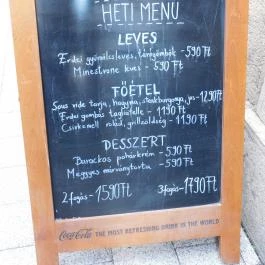 HETI MENÜ
LEVES
Erdei gyümölcsleves, túrógombóc - 590 Ft
Minestrone leves - 590 Ft
FŐÉTEL
Sous vide tarja, hagyma, steakburgonya, jus - 1290 Ft
Erdei gombás tagliatelle - 1190 Ft
Csirkemell rolád, grillzöldség - 1190 Ft
DESSZERT
Barackos pohárkrém - 590 Ft
Meggyes márványtorta - 590 Ft
2 fogás - 1590 Ft 3 fogás - 1790 Ft
Coca-Cola THE MOST REFRESHING DRINK IN THE WORLD